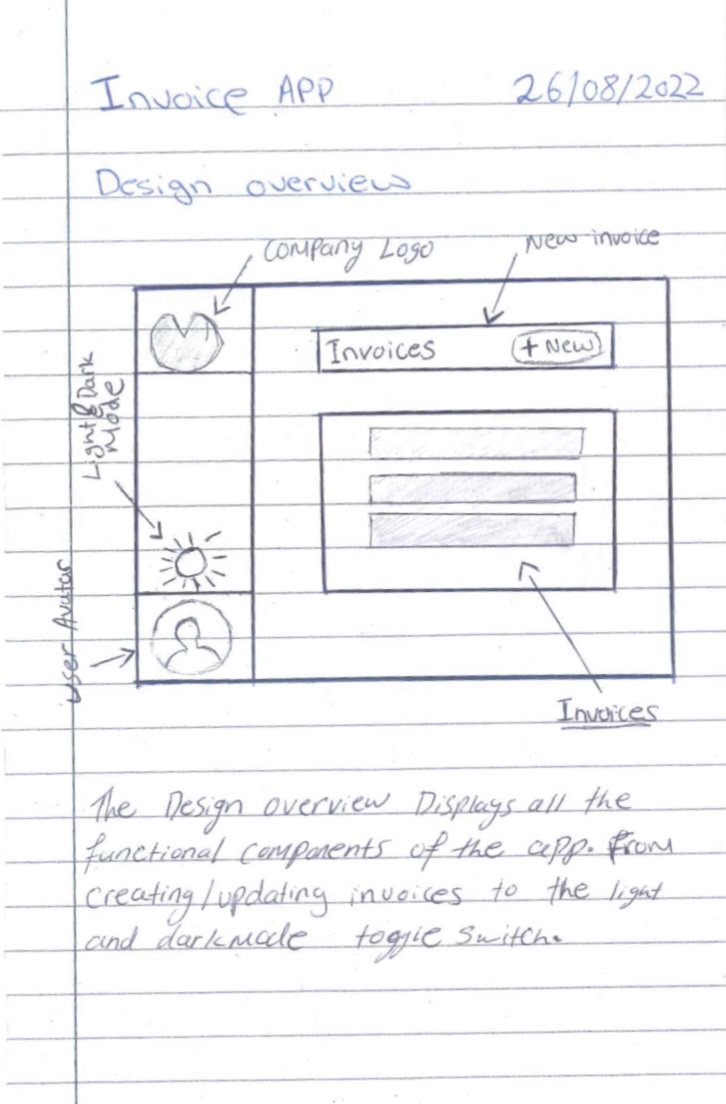 Invoice APP 26/08/2022
Design overview
Company Logo
New invoice
Invoices + New
Light & Dark
Mode
User Avatar
Invoices
The Design overview Displays all the
functional components of the app. From
creating/updating invoices to the light
and darkmode toggle switch.